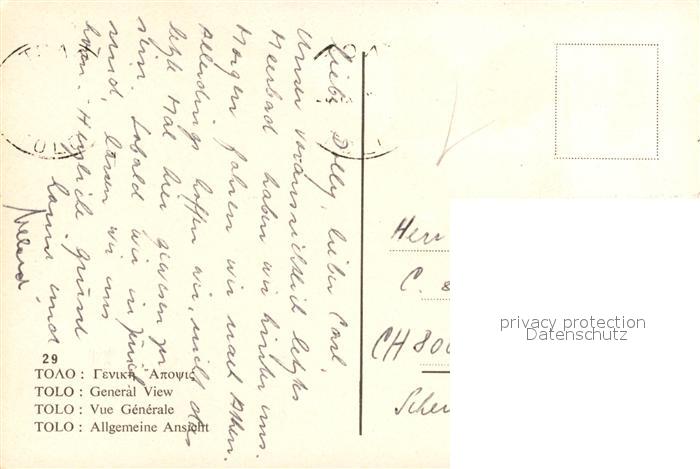 Liebe Dolly, lieber Carl,
Unser voraussichtlich letztes
Meerbad haben wir hinter uns.
Morgen fahren wir nach Athen.
Allerdings hoffen wir, nicht das
letzte Mal hier gewesen zu
sein. Sobald wir in Zürich
sind, lassen wir uns
hören. Herzliche Grüsse
und
29
ΤΟΛΟ : Γενικὴ Ἄποψις
TOLO : General View
TOLO : Vue Générale
TOLO : Allgemeine Ansicht
Herr
C. &
CH 800
privacy protection
Datenschutz